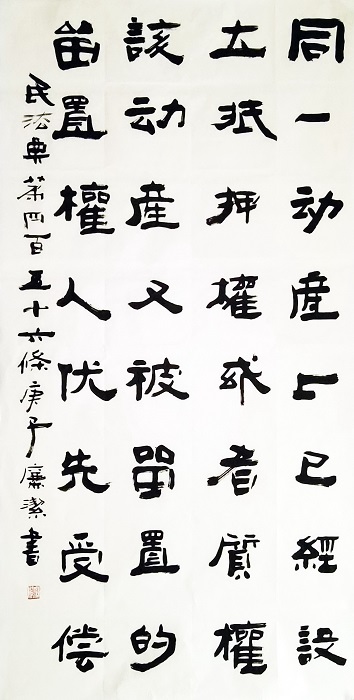 同一动産上已經設
立抵押權或者質權
該动産又被留置的
留置權人优先受偿
民法典第四百五十六條庚子廉潔書